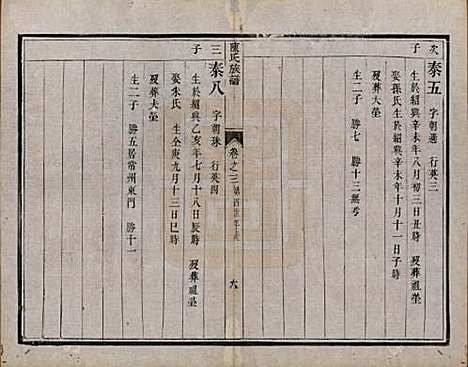 次子
泰五 字朝憲 行英三
生於紹興辛未年八月初三日丑時 歿葬祖塋
娶孫氏生於紹興辛未年十月十一日子時
歿葬大塋
生二子 勝七 勝十三無考
氏族譜
卷之三
六
三子
泰八 字朝珠 行英四
生於紹興乙亥年七月十八日辰時 歿葬祖塋
娶朱氏 生仝庚九月十三日巳時
歿葬夫塋
生二子 勝五居常州東門 勝十一